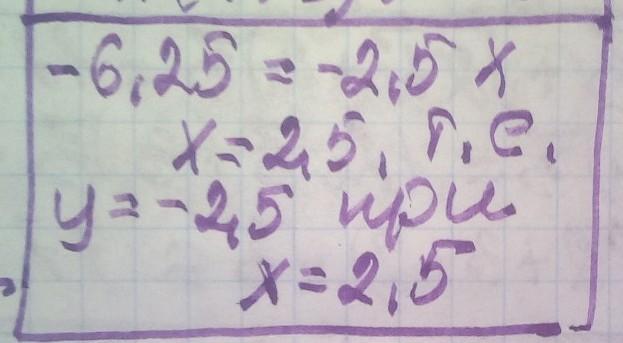 -6,25 = -2,5 x
x = 2,5, т.е.
y = -2,5 при
x = 2,5